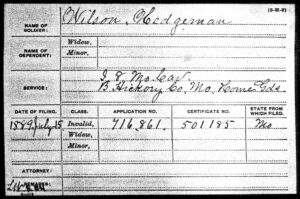 (3-252)
NAME OF SOLDIER: Wilson, Hedgeman
NAME OF DEPENDENT: Widow,
Minor,
SERVICE: I 8 Mo Cav
B. Hickory Co, Mo. Home Gds.
DATE OF FILING. CLASS. APPLICATION NO. CERTIFICATE NO. STATE FROM WHICH FILED.
1889, July 15 Invalid, 716.861. 501185 Mo
Widow,
Minor,
ATTORNEY: